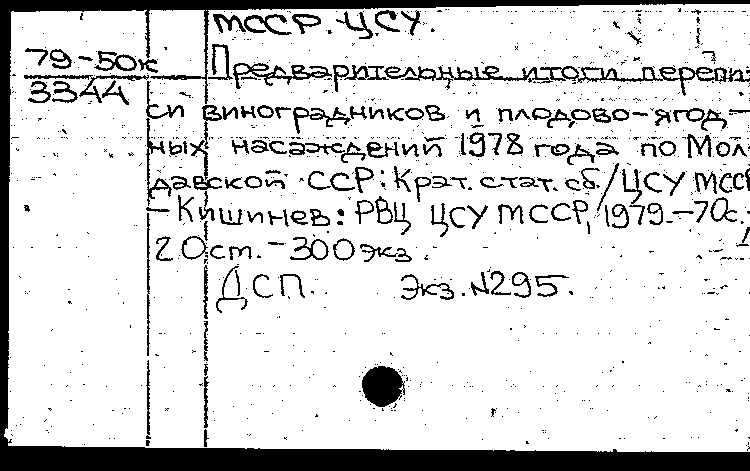 МССР. ЦСУ.
79-50к
3344
Предварительные итоги перепи-
си виноградников и плодово-ягод-
ных насаждений 1978 года по Мол-
давской ССР: Крат. стат. сб./ЦСУ МССР
-Кишинев: РВЦ ЦСУ МССР, 1979.-70с.;
20ст.-300экз.
ДСП. Экз.№295.